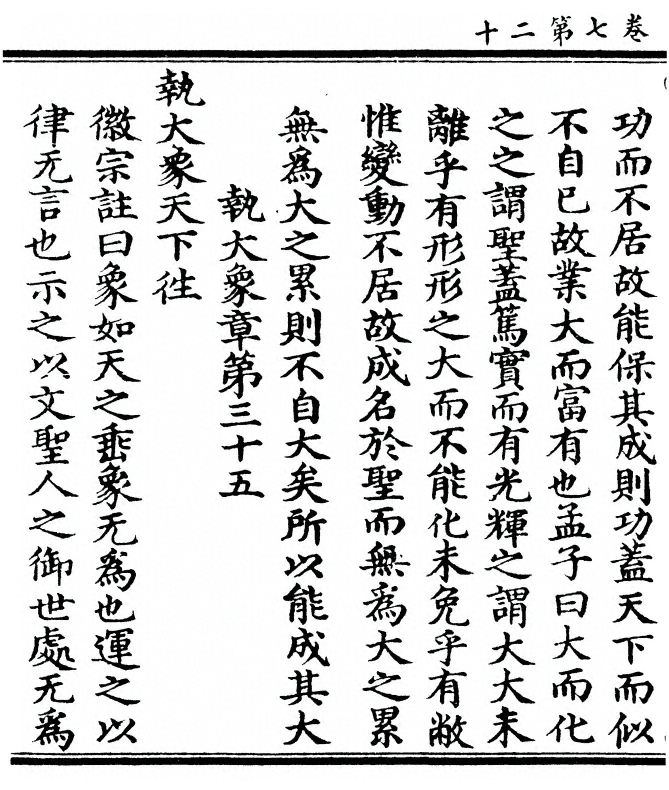 卷七第二十
功而不居故能保其成則功蓋天下而似
不自已故業大而富有也孟子曰大而化
之之謂聖蓋篤實而有光輝之謂大大未
離乎有形形之大而不能化未免乎有敝
惟變動不居故成名於聖而無為大之累
無為大之累則不自大矣所以能成其大
執大象章第三十五
執大象天下徃
徽宗註曰象如天之垂象无為也運之以
律无言也示之以文聖人之御世處无為